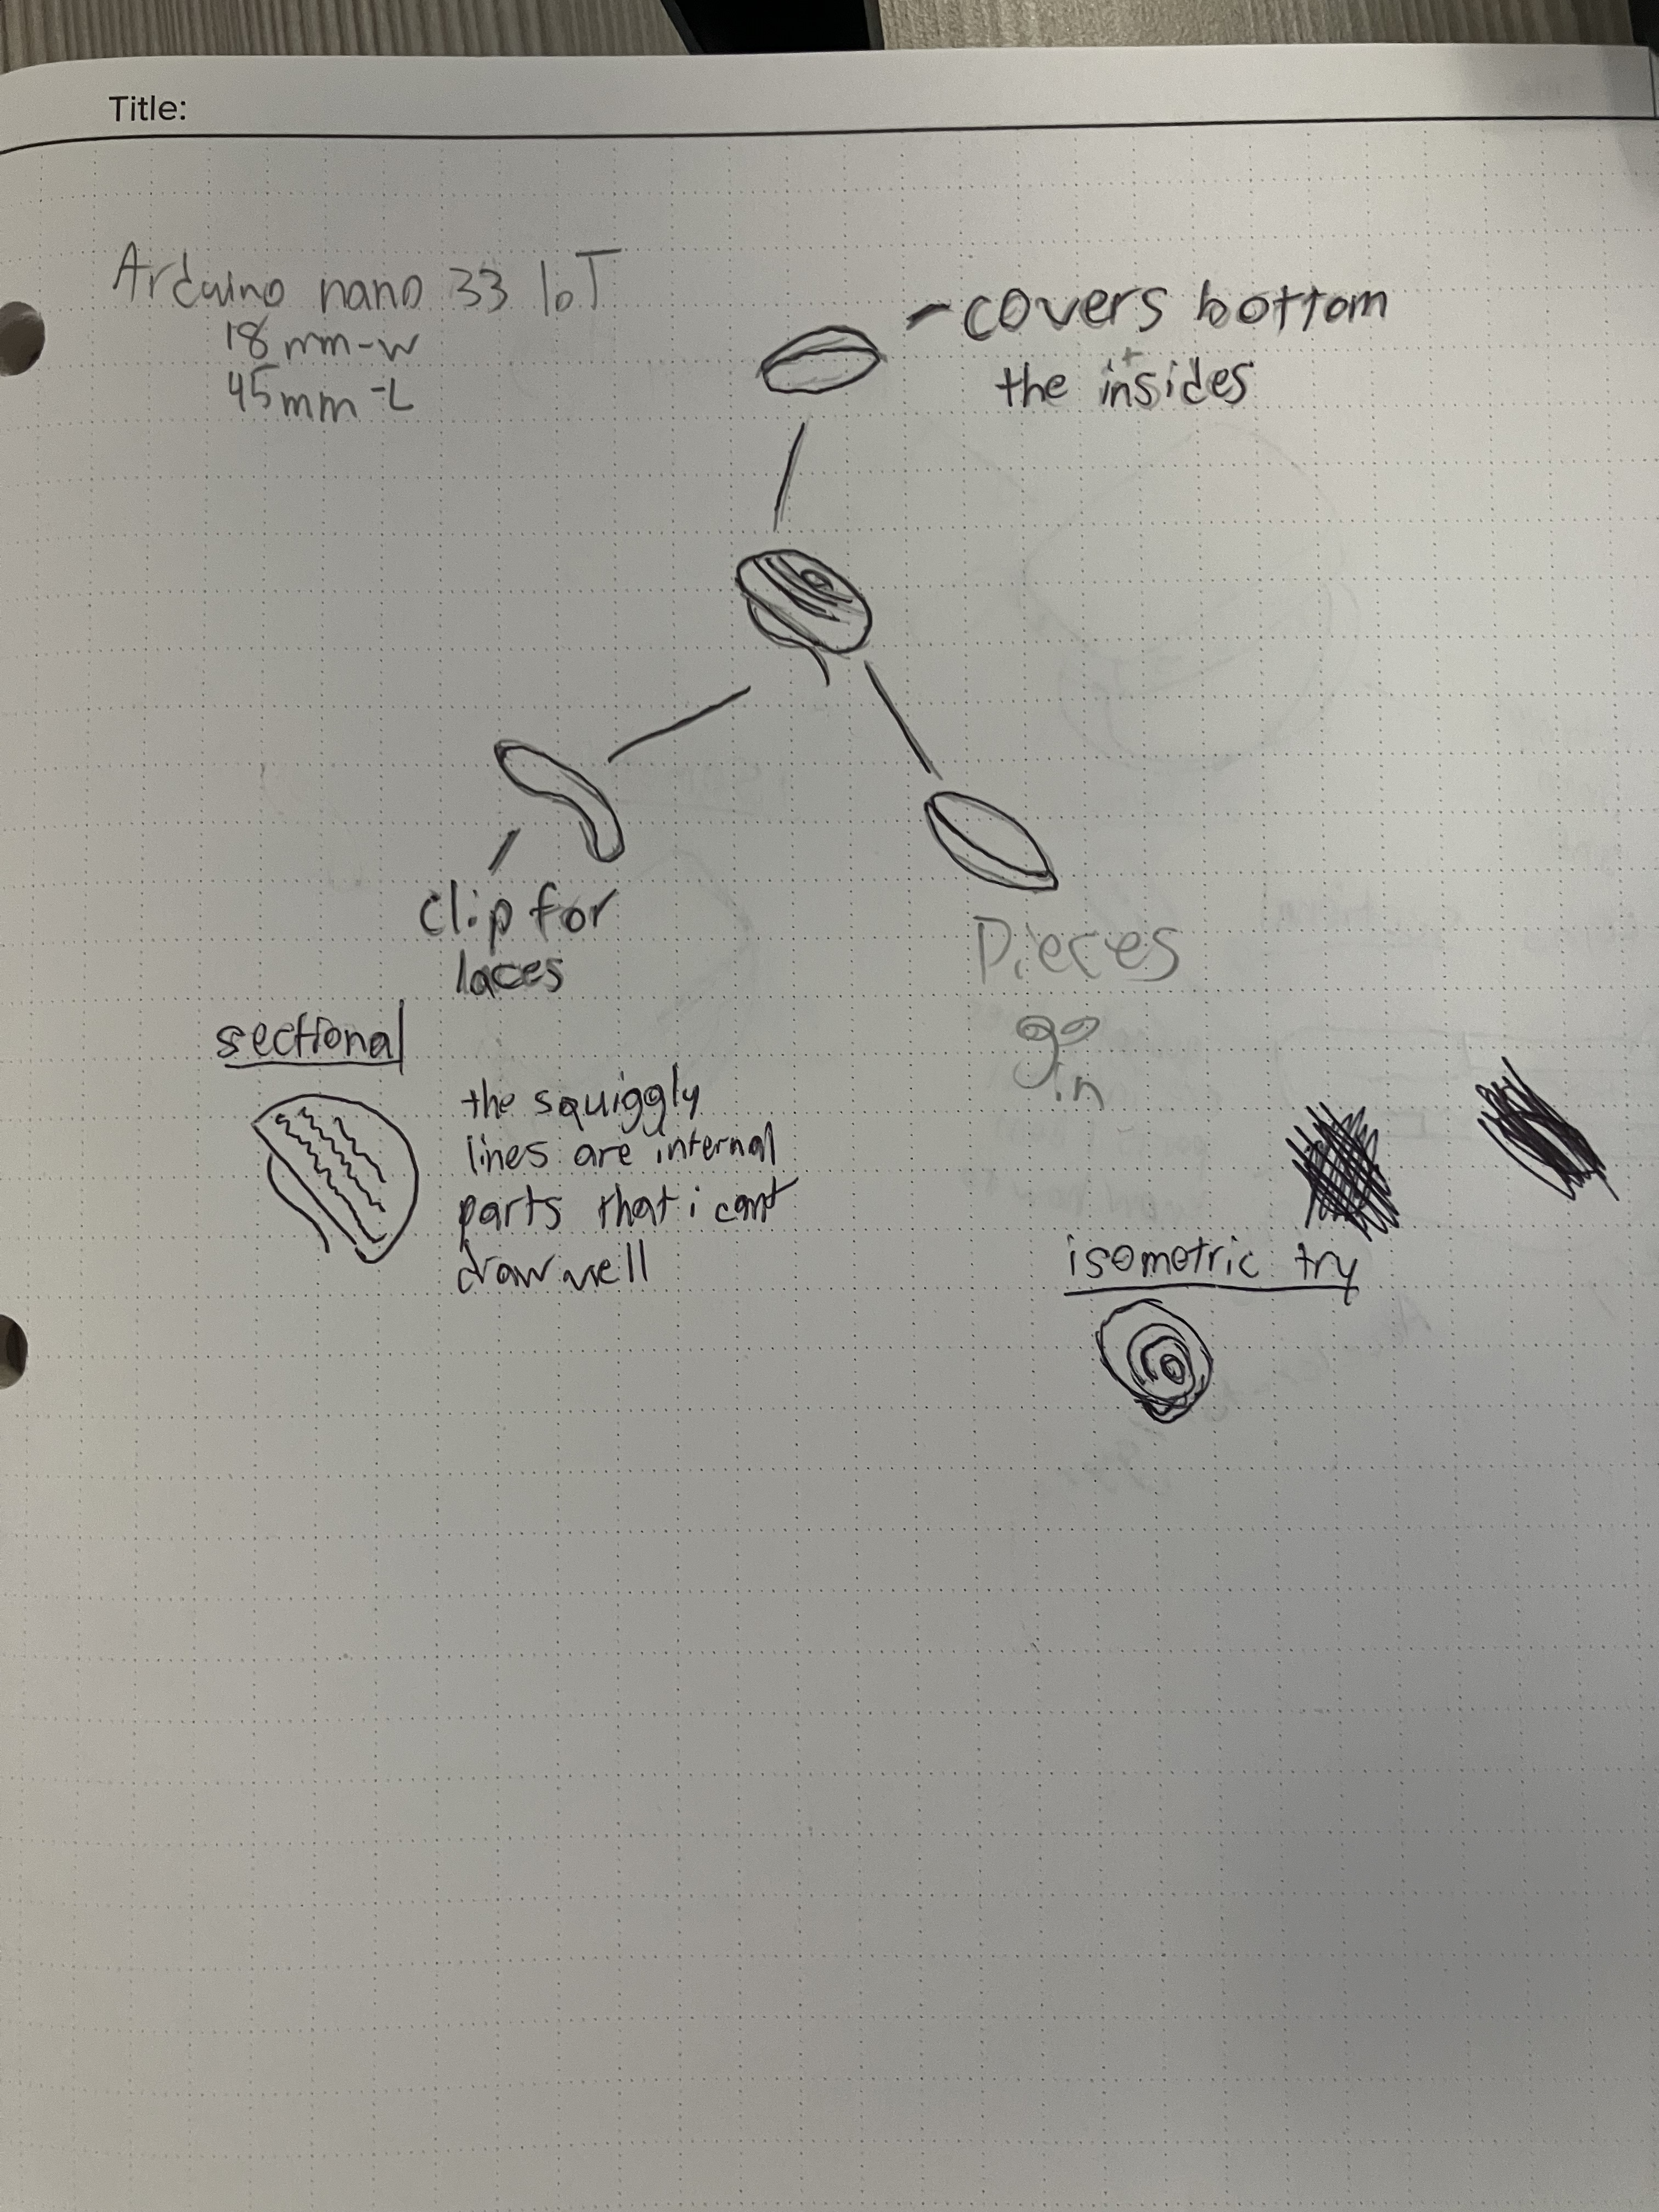 Title:
Arduino nano 33 IoT
18mm-w
45mm-L
-covers bottom
the insides
clip for
laces
Pieces
go
in
sectional
the squiggly
lines are internal
parts that i cant
draw well
isometric try